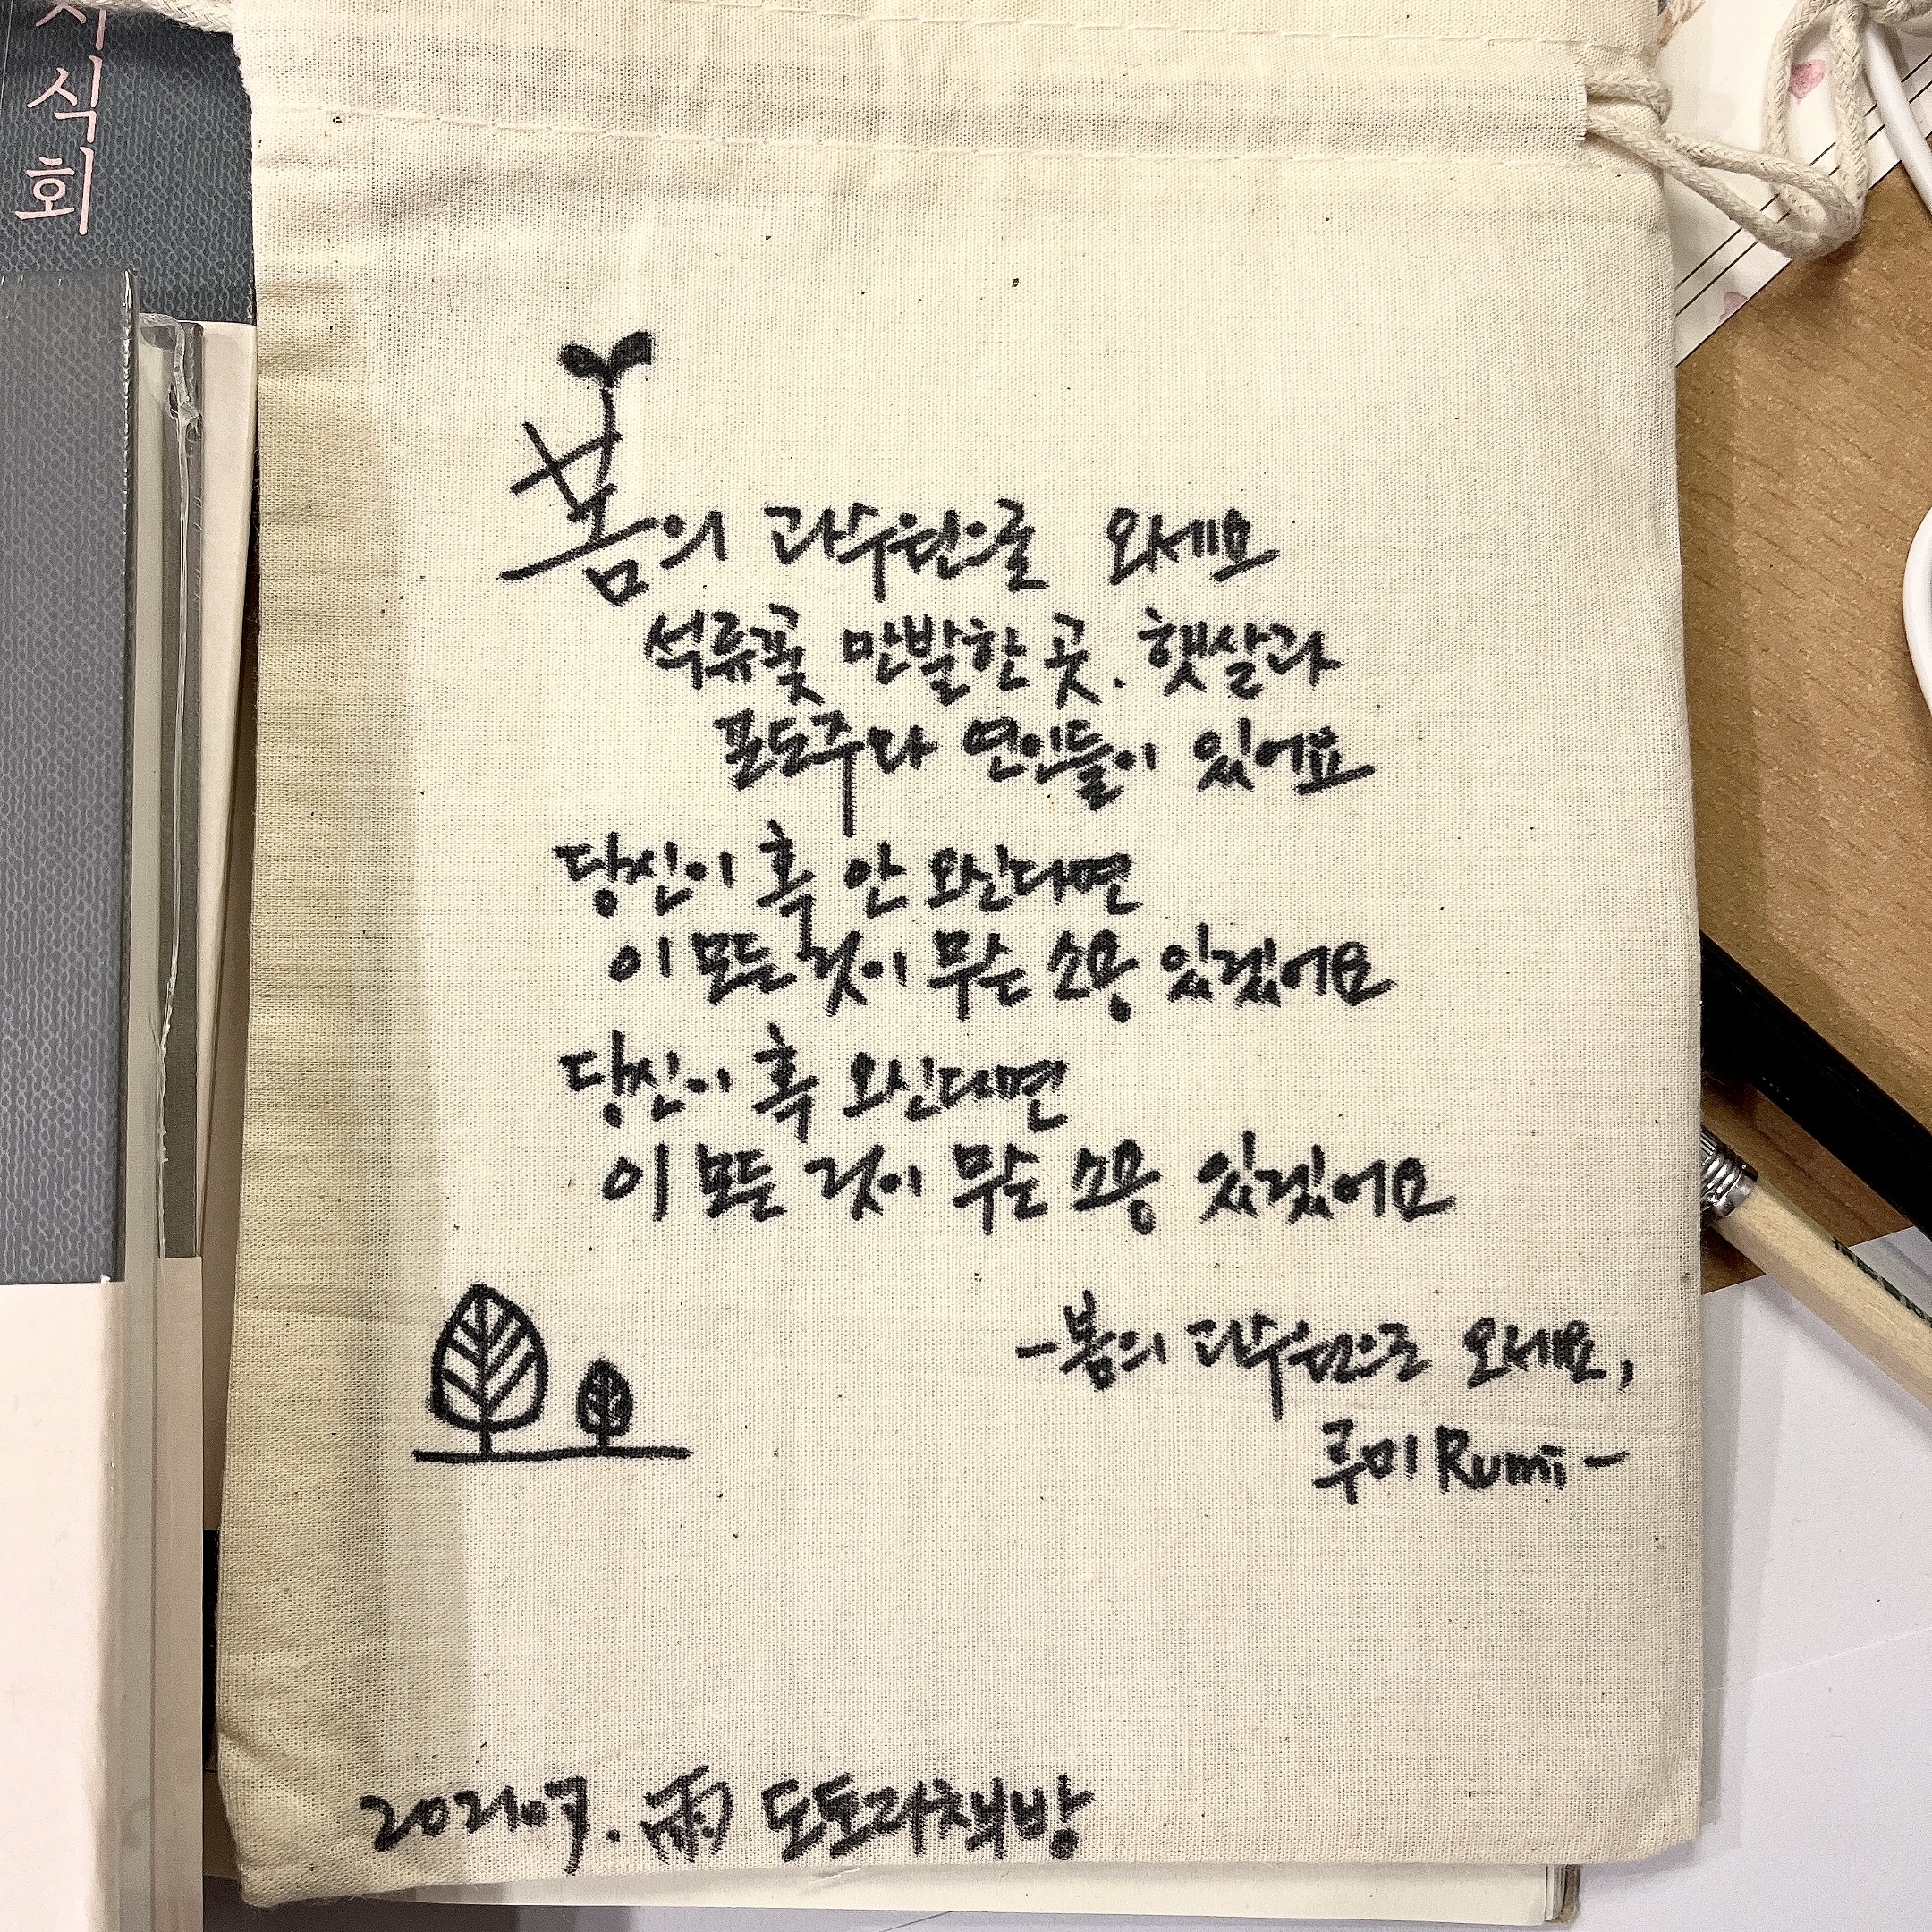 시식회
봄의 과수원으로 오세요
석류꽃 만발한 곳. 햇살과
포도주와 연인들이 있어요
당신이 혹 안 오신다면
이 모든 것이 무슨 소용 있겠어요
당신이 혹 오신다면
이 모든 것이 무슨 소용 있겠어요
-봄의 과수원으로 오세요,
루미 Rumi-
202107. 雨 도토리책방